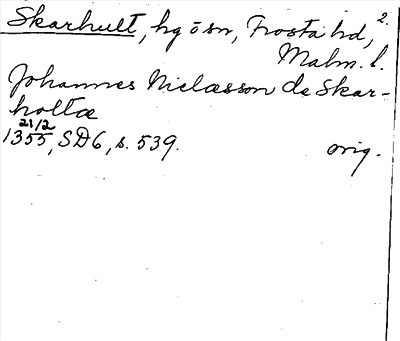 Skarhult, hg ō sn, Frosta hd, 2.
Malm. l.
Johannes Niclæsson de Skar-
holtæ
21/2
1355, SD6, s. 539. orig.